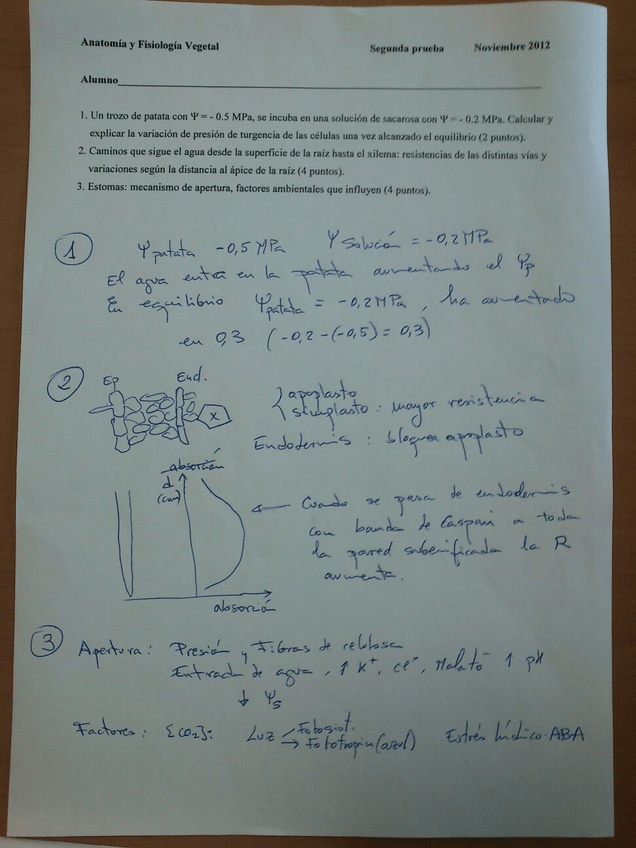 Anatomía y Fisiología Vegetal Segunda prueba Noviembre 2012
Alumno
1. Un trozo de patata con Ψ = - 0.5 MPa, se incuba en una solución de sacarosa con Ψ = - 0.2 MPa. Calcular y
explicar la variación de presión de turgencia de las células una vez alcanzado el equilibrio (2 puntos).
2. Caminos que sigue el agua desde la superficie de la raíz hasta el xilema: resistencias de las distintas vías y
variaciones según la distancia al ápice de la raíz (4 puntos).
3. Estomas: mecanismo de apertura, factores ambientales que influyen (4 puntos).
1 Ψpatata -0,5 MPa Ψ solución = -0,2 MPa
El agua entra en la patata aumentando el Ψp
En equilibrio Ψpatata = -0,2 MPa, ha aumentado
en 0,3 (-0,2-(-0,5) = 0,3)
2 Ep End. X
apoplasto
simplasto: mayor resistencia
Endodermis: bloquea apoplasto
absorción
d (cm)
absorción
← Cuando se pasa de endodermis
con banda de Caspari a toda
la pared suberificada la R
aumenta.
3 Apertura: Presión y Fibras de celulosa
Entrada de agua, ↑ K⁺, Cl⁻, Malato⁻ ↑ pH
↓ Ψs
Factores: [CO2]: Luz Fotosínt.
→ Fototropin (azul) Estrés hídrico: ABA